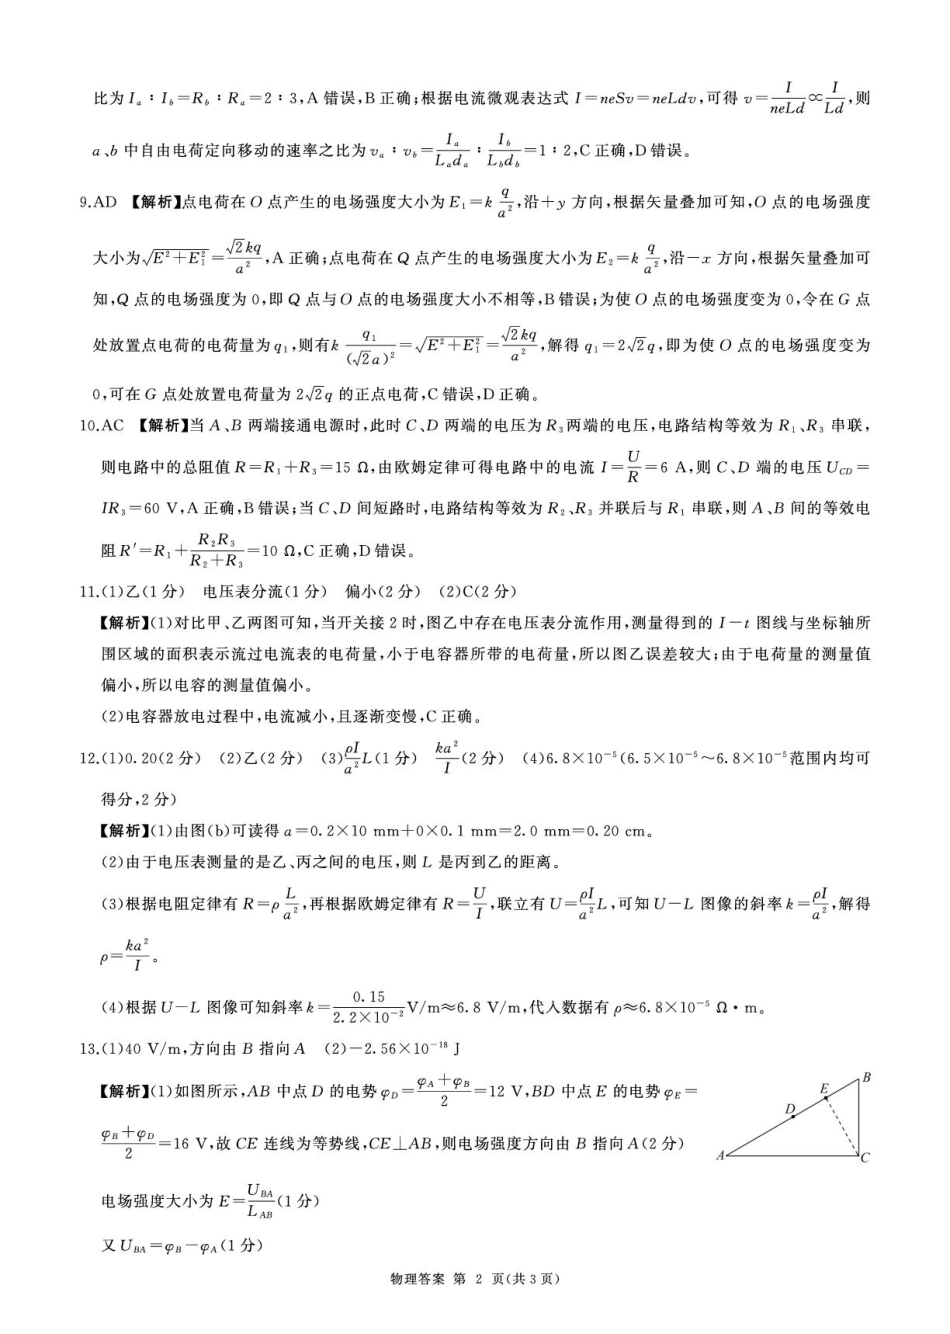 比为 Iₐ∶I_b=R_b∶Rₐ=2∶3,A 错误,B 正确;根据电流微观表达式 I=neSv=neLdv,可得 v=I/(neLd)∝I/(Ld),则
a、b 中自由电荷定向移动的速率之比为 vₐ∶v_b=Iₐ/(Lₐdₐ)∶I_b/(L_bd_b)=1∶2,C 正确,D 错误。
9.AD 【解析】点电荷在 O 点产生的电场强度大小为 E₁=k q/a²,沿+y 方向,根据矢量叠加可知,O 点的电场强度
大小为√(E²+E₁²)=√2kq/a²,A 正确;点电荷在 Q 点产生的电场强度大小为 E₂=k q/a²,沿−x 方向,根据矢量叠加可
知,Q 点的电场强度为 0,即 Q 点与 O 点的电场强度大小不相等,B 错误;为使 O 点的电场强度变为 0,令在 G 点
处放置点电荷的电荷量为 q₁,则有 k q₁/(√2a)²=√(E²+E₁²)=√2kq/a²,解得 q₁=2√2q,即为使 O 点的电场强度变为
0,可在 G 点处放置电荷量为 2√2q 的正点电荷,C 错误,D 正确。
10.AC 【解析】当 A、B 两端接通电源时,此时 C、D 两端的电压为 R₃两端的电压,电路结构等效为 R₁、R₃ 串联,
则电路中的总阻值 R=R₁+R₃=15 Ω,由欧姆定律可得电路中的电流 I=U/R=6 A,则 C、D 端的电压 U_CD=
IR₃=60 V,A 正确,B 错误;当 C、D 间短路时,电路结构等效为 R₂、R₃ 并联后与 R₁ 串联,则 A、B 间的等效电
阻 R′=R₁+R₂R₃/(R₂+R₃)=10 Ω,C 正确,D 错误。
11.(1)乙(1 分) 电压表分流(1 分) 偏小(2 分) (2)C(2 分)
【解析】(1)对比甲、乙两图可知,当开关接 2 时,图乙中存在电压表分流作用,测量得到的 I−t 图线与坐标轴所
围区域的面积表示流过电流表的电荷量,小于电容器所带的电荷量,所以图乙误差较大;由于电荷量的测量值
偏小,所以电容的测量值偏小。
(2)电容器放电过程中,电流减小,且逐渐变慢,C 正确。
12.(1)0.20(2 分) (2)乙(2 分) (3)ρI/a² L(1 分) ka²/I(2 分) (4)6.8×10⁻⁵(6.5×10⁻⁵~6.8×10⁻⁵范围内均可
得分,2 分)
【解析】(1)由图(b)可读得 a=0.2×10 mm+0×0.1 mm=2.0 mm=0.20 cm。
(2)由于电压表测量的是乙、丙之间的电压,则 L 是丙到乙的距离。
(3)根据电阻定律有 R=ρ L/a²,再根据欧姆定律有 R=U/I,联立有 U=ρI/a² L,可知 U−L 图像的斜率 k=ρI/a²,解得
ρ=ka²/I。
(4)根据 U−L 图像可知斜率 k=0.15/(2.2×10⁻²) V/m≈6.8 V/m,代入数据有 ρ≈6.8×10⁻⁵ Ω·m。
13.(1)40 V/m,方向由 B 指向 A (2)−2.56×10⁻¹⁸ J
【解析】(1)如图所示,AB 中点 D 的电势 φ_D=(φ_A+φ_B)/2=12 V,BD 中点 E 的电势 φ_E=
(φ_B+φ_D)/2=16 V,故 CE 连线为等势线,CE⊥AB,则电场强度方向由 B 指向 A(2 分)
电场强度大小为 E=U_BA/L_AB(1 分)
又 U_BA=φ_B−φ_A(1 分)
B
E
D
A
C
物理答案 第 2 页(共 3 页)